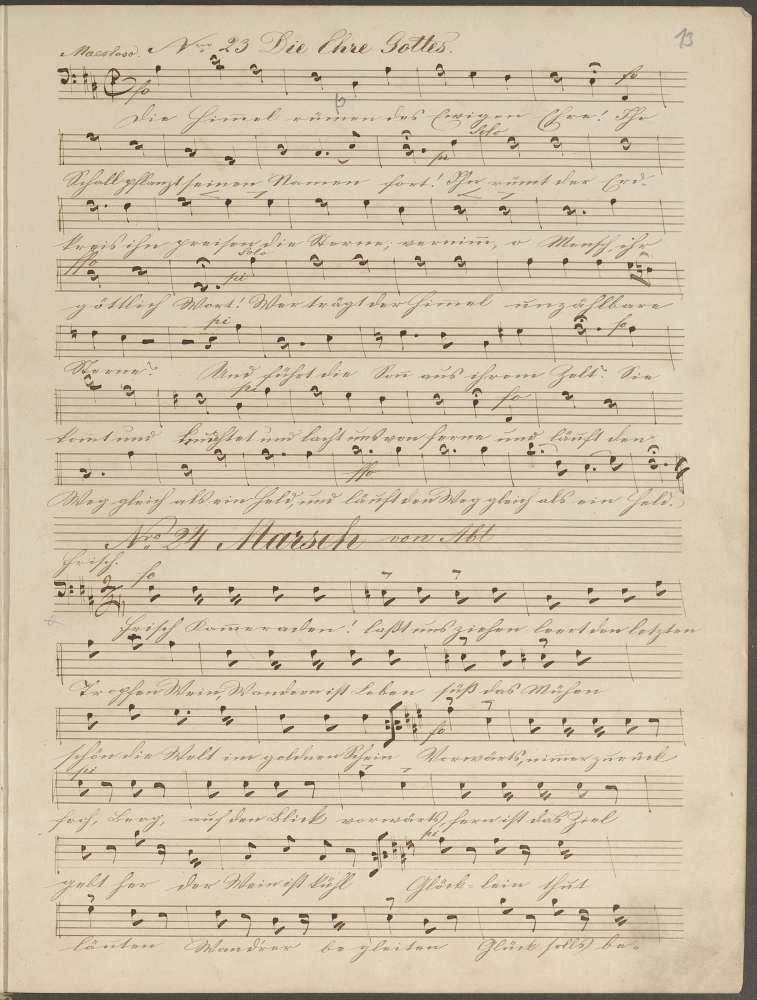 13
Maestoso. Nro 23 Die Ehre Gottes.
fo fo
Die Himel rümen des Ewigen Ehre! Ihr
pi Solo
Schall pflanzt seinen Namen fort! Ihn rümt der Erd-
kreis ihn preisen die Sterne; vernimm, o Mensch, ihr
ffo pi Solo
göttlich Wort! Wer trägt der Himel unzählbare
pi fo
Sterne? Und führt die Son aus ihrem Zelt? Sie
pi fo
komt und leuchtet und lacht uns von ferne und läuft den
ffo
Weg gleich als ein Held, und läuft den Weg gleich als ein Held.
Nro 24 Marsch von Abt
Frisch.
fo
Frisch Kameraden! laßt uns ziehen leert den letzten
Tropfen Wein, Wandern ist Leben süß das Mühen
fo
schön die Welt im goldnen Schein Vorwärts, nimmer zurück
pi
hoch, Berg, auf den Blick vorwärts, fern ist das Ziel
pi
gebt her der Wein ist kühl Glöck-lein thut
läuten Wandrer begleiten Glück solls be-